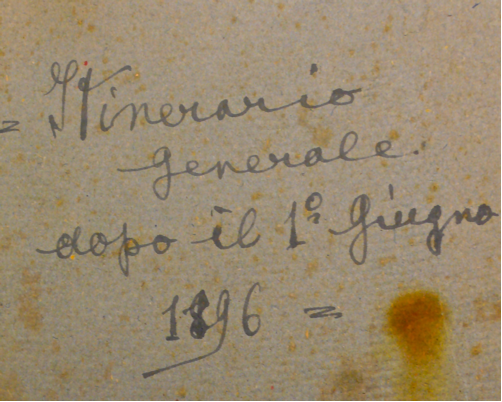 = Itinerario
generale.
dopo il 1º Giugno
1896 =